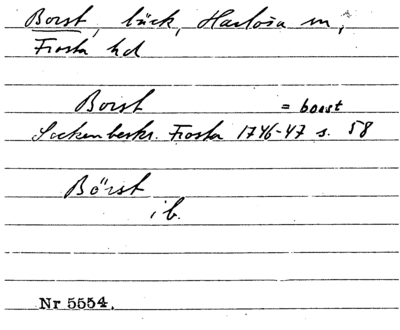 Borst, bäck, Harlösa sn,
Frosta hd
Borst = borst
Sockenbeskr. Frosta 1746-47 s. 58
Börst
ib.
Nr 5554.